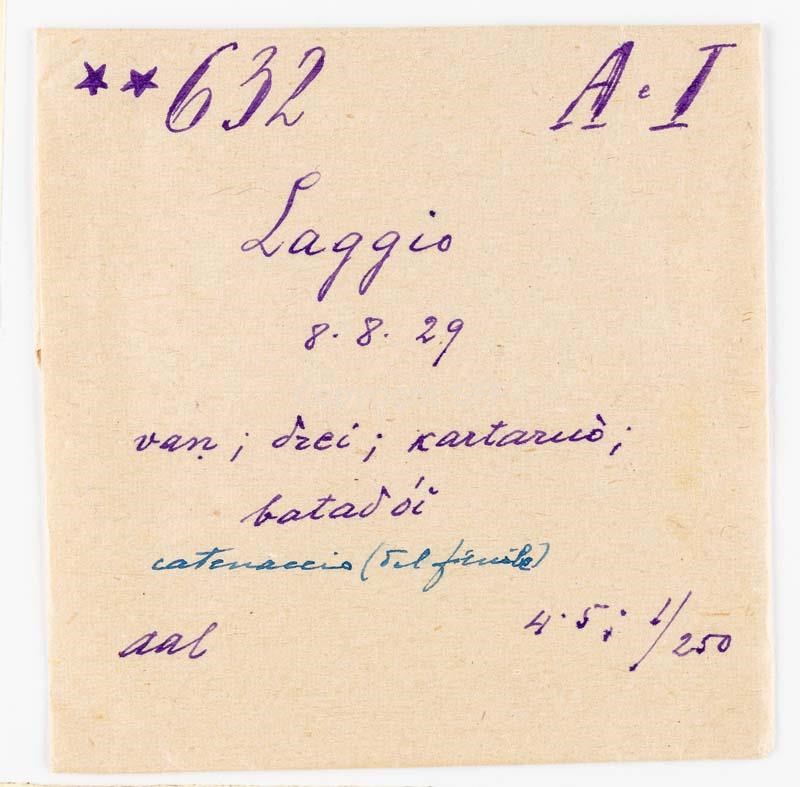 ★★632 A·I
Laggio
8. 8. 29
vaṇ; drei; kartaruò;
batadói
catenaccio (del fienile)
aal 4·5; 1/250